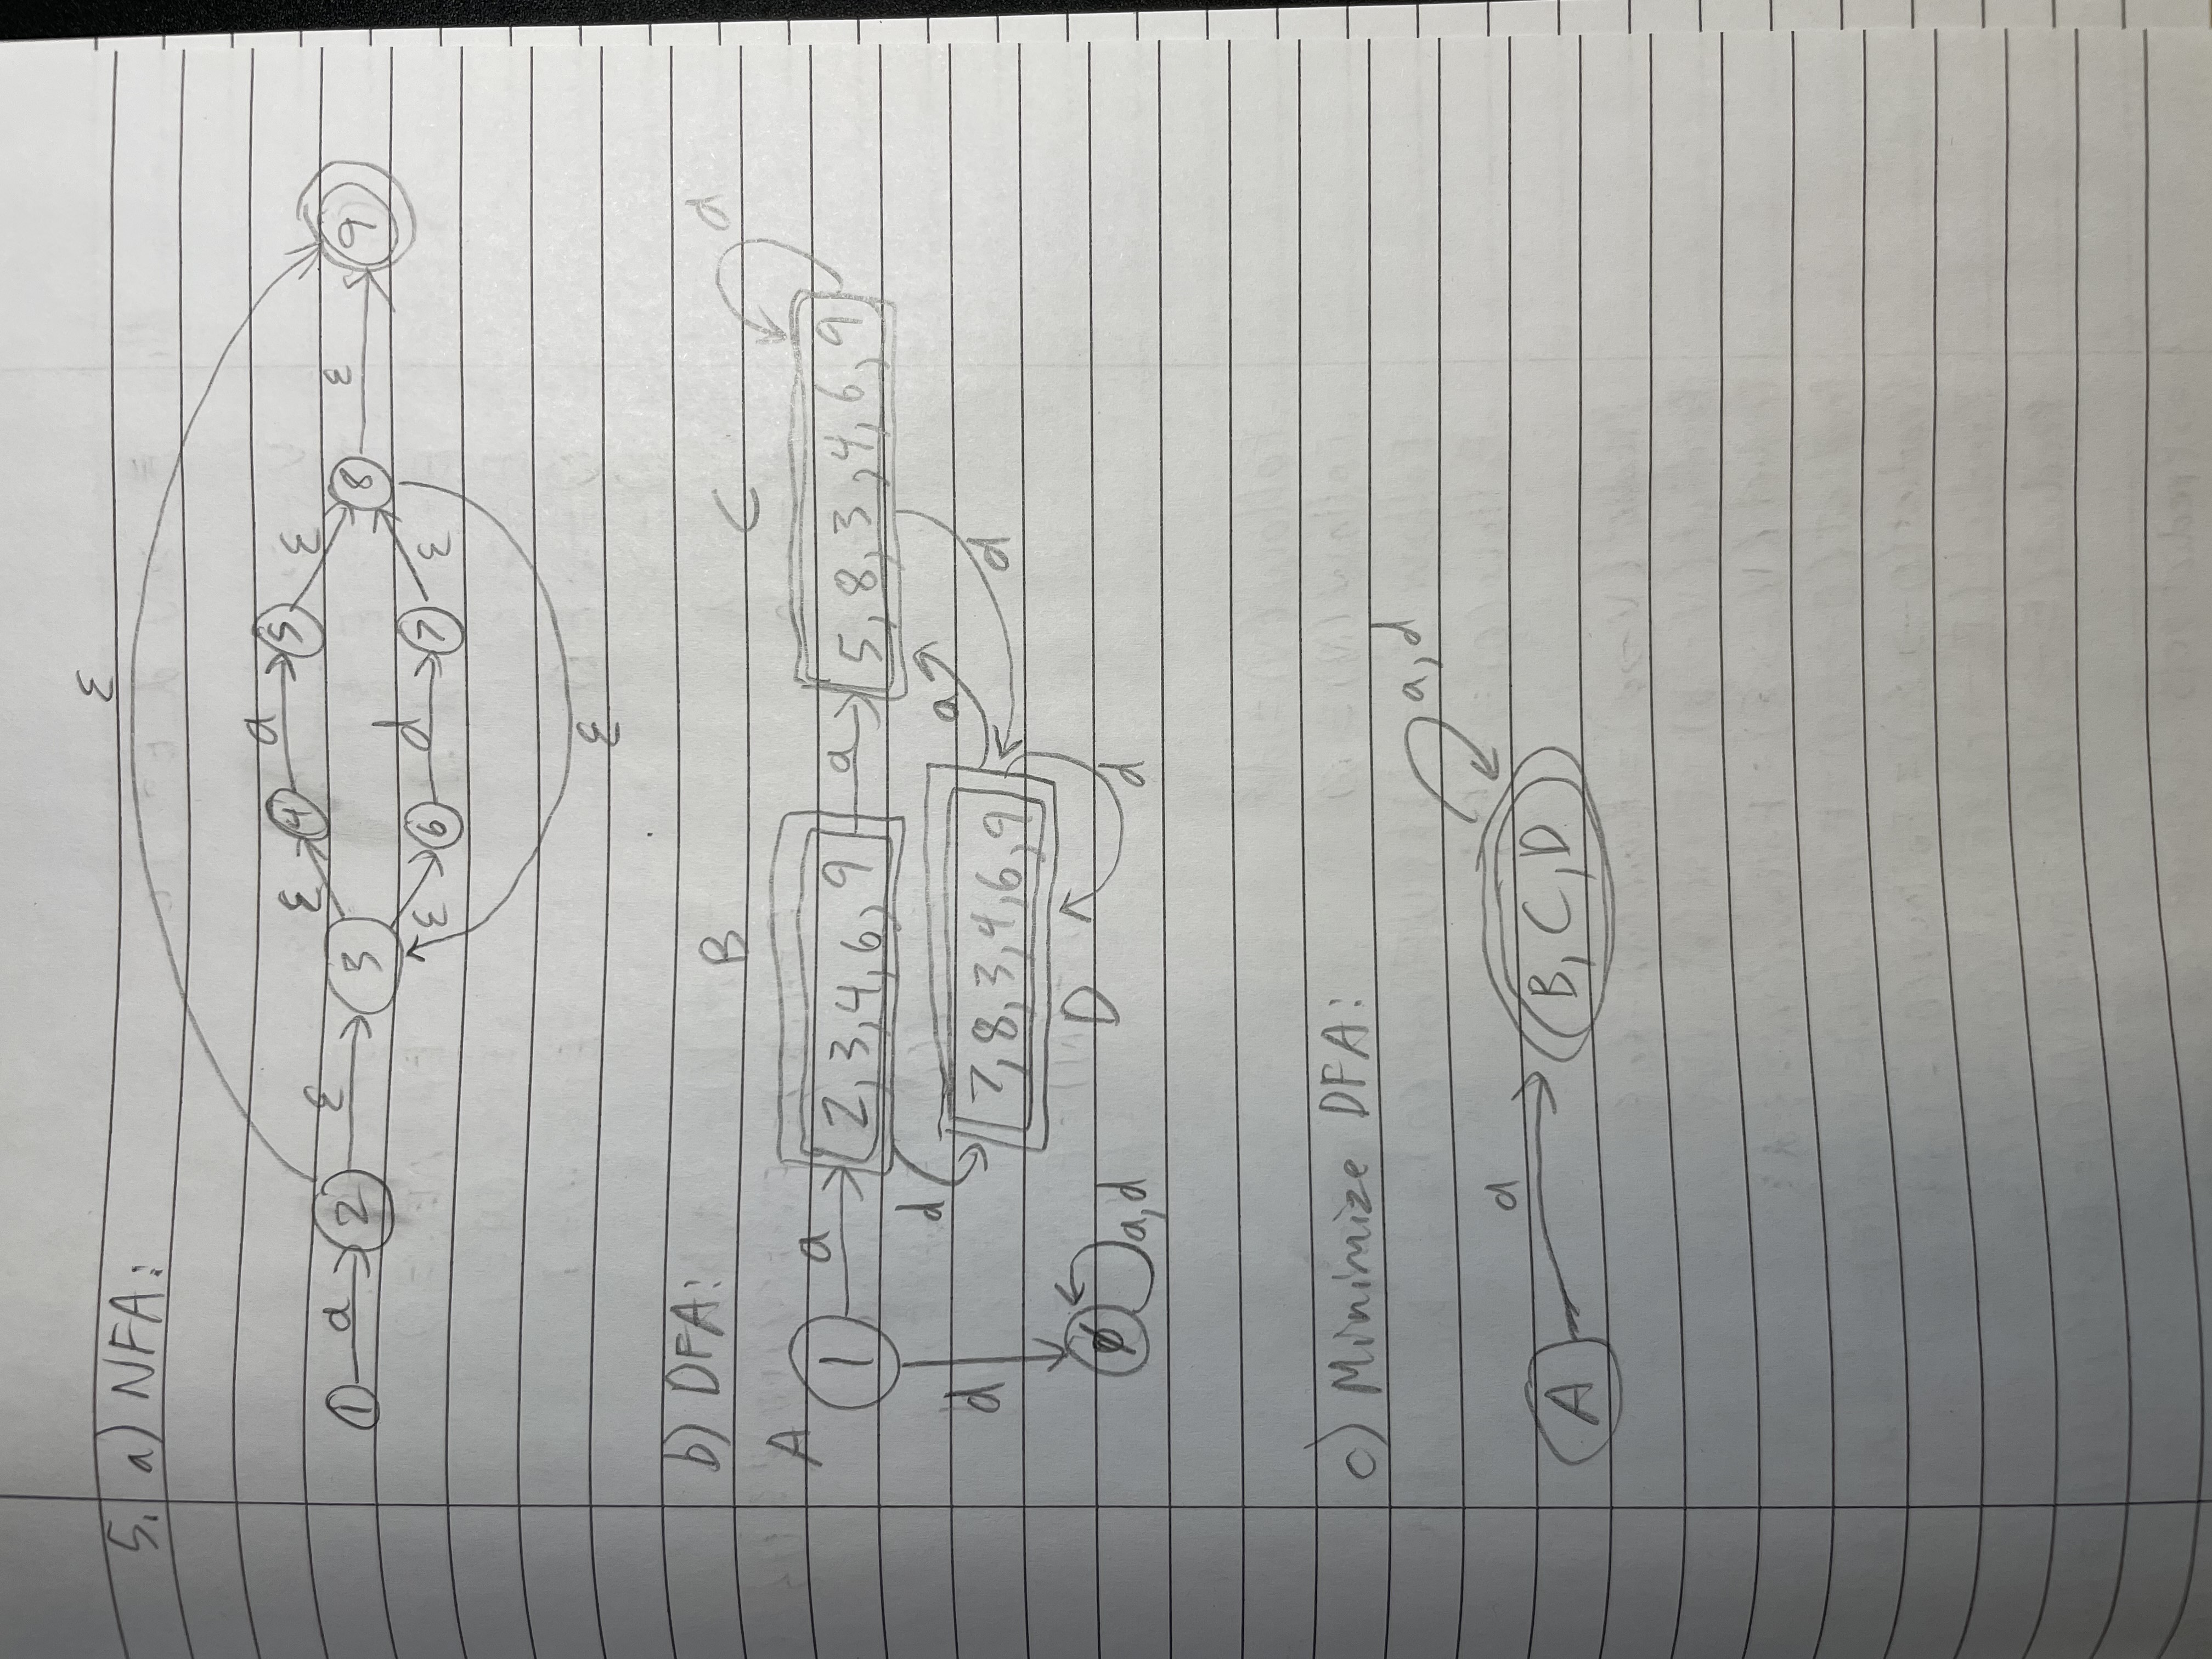 5. a) NFA:
ε
a
ε ε a ε
1 2 ε 3 4 5 8 ε 9
ε 6 d 7 ε
ε
b) DFA:
B C a
A
1 a 2,3,4,6,9 a 5,8,3,4,6,9
d a
d 7,8,3,4,6,9 d
D
ø a,d d
c) Minimize DFA:
a,d
a
A B,C,D